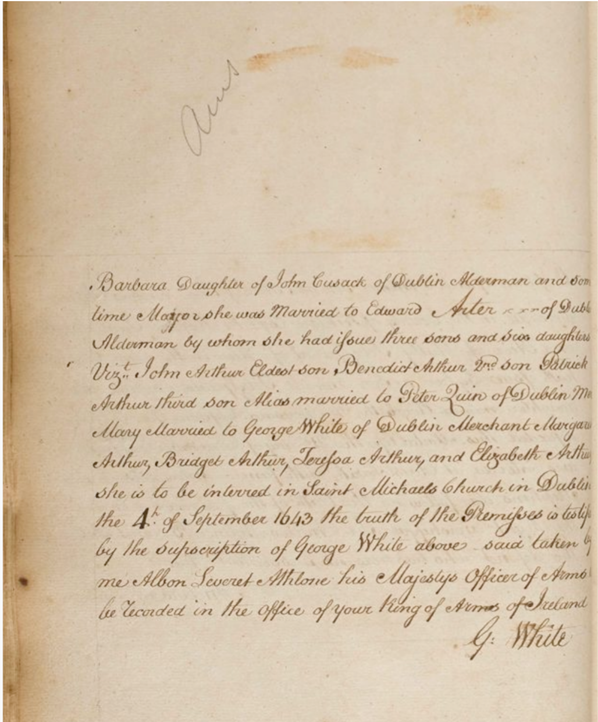 Ams
Barbara Daughter of John Cusack of Dublin Alderman and som
time Mayor she was Married to Edward Arter of Dubl
Alderman by whom she had issue three sons and six daughters
Vizt. John Arthur Eldest son Benedict Arthur 2nd son Patrick
Arthur third son Alias married to Peter Quin of Dublin M
Mary Married to George White of Dublin Merchant Margar
Arthur, Bridget Arthur, Teressa Arthur, and Elizabeth Arthu
she is to be interred in Saint Michaels Church in Dublin
the 4th. of September 1643 the truth of the Premisses is testif
by the supscription of George White above said taken b
me Albon Leveret Athlone his Majestys Officer of Arms
be recorded in the office of your King of Arms of Ireland
G: White